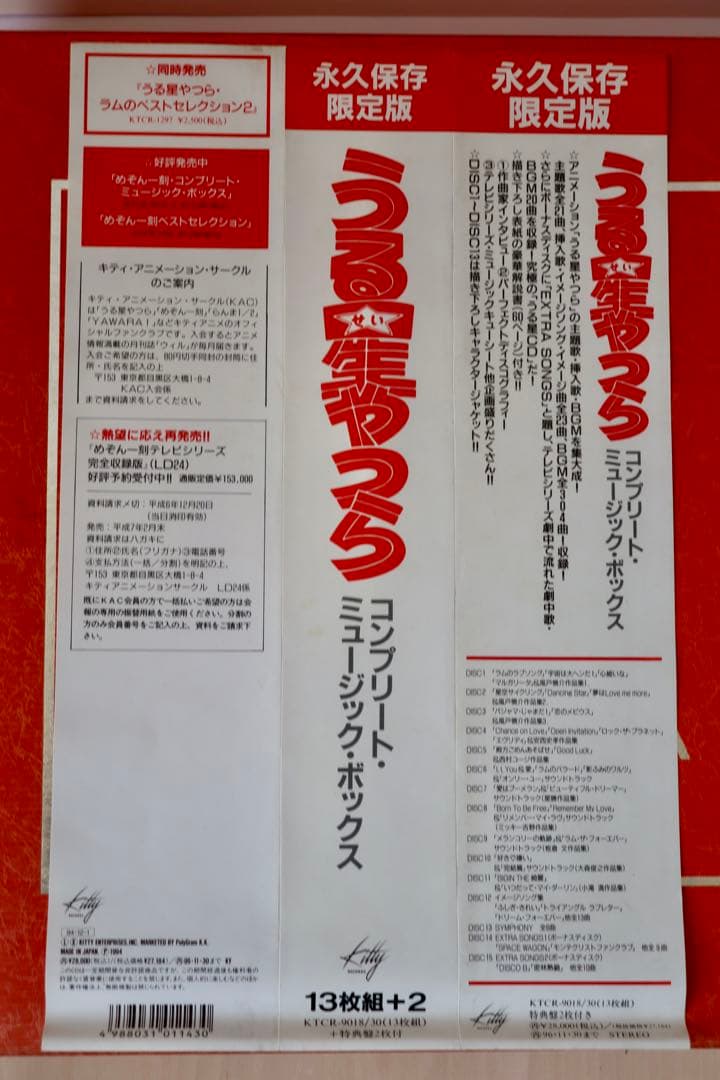 ☆同時発売
『うる星やつら・
ラムのベストセレクション2』
KTCR-1297 ¥2,500(税込)
☆好評発売中
「めぞん一刻・コンプリート・
ミュージック・ボックス」
「めぞん一刻ベストセレクション」
キティ・アニメーション・サークル
のご案内
キティ・アニメーション・サークル(KAC)
は「うる星やつら」「めぞん一刻」「らんま1/2」
「YAWARA!」などキティアニメのオフィ
シャルファンクラブです。入会するとアニメ
情報満載の月刊誌「ウィル」が毎月届きます。
入会ご希望の方は、80円切手同封の封筒に住
所・氏名を記入の上
〒153 東京都目黒区大橋1-8-4
KAC入会係
まで資料請求をしてください。
☆熱望に応え再発売!!
「めぞん一刻テレビシリーズ
完全収録版」(LD24)
好評予約受付中!! 通販定価¥153,000
資料請求〆切:平成6年12月20日
(当日消印有効)
発売:平成7年2月末
資料請求はハガキに
①住所②氏名(フリガナ)③電話番号
④支払方法(一括/分割)を明記の上、
〒153 東京都目黒区大橋1-8-4
キティアニメーションサークル LD24係
既にKAC会員の方で一括払いご希望の方は会
報の専用の振替用紙をご使用ください。分割
の方のみ会員番号をご記入の上、資料をご請求下
さい。
Kitty
RECORDS
94·12·1
KITTY ENTERPRISES, INC. MARKETED BY PolyGram K.K.
MADE IN JAPAN. Ⓟ1994
¥28,000(税込)(税抜価格¥27,184) 96·11·30まで KY
4 988031 011430
永久保存
限定版
うる星やつら
せい
コンプリート・
ミュージック・ボックス
Kitty
RECORDS
13枚組+2
KTCR-9018/30(13枚組)
+特典盤2枚付
永久保存
限定版
うる星やつら
せい
コンプリート・
ミュージック・ボックス
☆アニメーション「うる星やつら」の主題歌・挿入歌・BGMを集大成!
主題歌全21曲、挿入歌・イメージソング・イメージ曲全23曲、BGM全304曲!収録!
☆さらにボーナスディスクに「EXTRA SONGS」と題し、テレビシリーズ劇中で流れた劇中歌・
BGM20曲を収録!究極の「うる星CD」だ!
☆描き下ろし表紙の豪華解説書(60ページ)付き!!
①作曲家インタビュー②パーフェクトディスコグラフィー
③テレビシリーズ・ミュージックキューシート他企画盛りだくさん!!
☆DISC1〜DISC13は描き下ろしキャラクタージャケット!!
DISC1 「ラムのラブソング」「宇宙は大ヘンだ!」「心細いな」
「マルガリータ」&風戸慎介作品集1
DISC2 「星空サイクリング」「Dancing Star」「夢はLove me more」
&風戸慎介作品集2
DISC3 「パジャマ・じゃまだ!」「恋のメビウス」
&風戸慎介作品集3
DISC4 「Chance on Love」「Open Invitation」「ロック・ザ・プラネット」
「エヴリデイ」&安西史孝作品集
DISC5 「殿方ごめんあそばせ」「Good Luck」
&西村コージ作品集
DISC6 「I, I, You&愛」「ラムのバラード」「影ふみのワルツ」
&「オンリー・ユー」サウンドトラック
DISC7 「愛はブーメラン」&「ビューティフル・ドリーマー」
サウンドトラック(星勝作品集)
DISC8 「Born To Be Free」「Remember My Love」
&「リメンバー・マイ・ラヴ」サウンドトラック
(ミッキー吉野作品集)
DISC9 「メランコリーの軌跡」&「ラム・ザ・フォーエバー」
サウンドトラック(板倉 文作品集)
DISC10 「好き♡嫌い」
&「完結篇」サウンドトラック(大森俊之作品集)
DISC11 「BIGIN THE 綺麗」
&「いつだって・マイ・ダーリン」(小滝 満作品集)
DISC12 イメージソング集
「ふしぎ・きれい」「トライアングル ラブレター」
「ドリーム・フォーエバー」他全13曲
DISC13 SYMPHONY 全8曲
DISC14 EXTRA SONGS1(ボーナスディスク)
「SPACE WAGON」「モンテクリストファンクラブ」他全9曲
DISC15 EXTRA SONGS2(ボーナスディスク)
「DISCO B」「密林熱戦」他全10曲
Kitty
RECORDS
KTCR-9018/30(13枚組)
特典盤2枚付き
¥28,000(税込)/(税抜価格¥27,184)
96·11·30まで STEREO